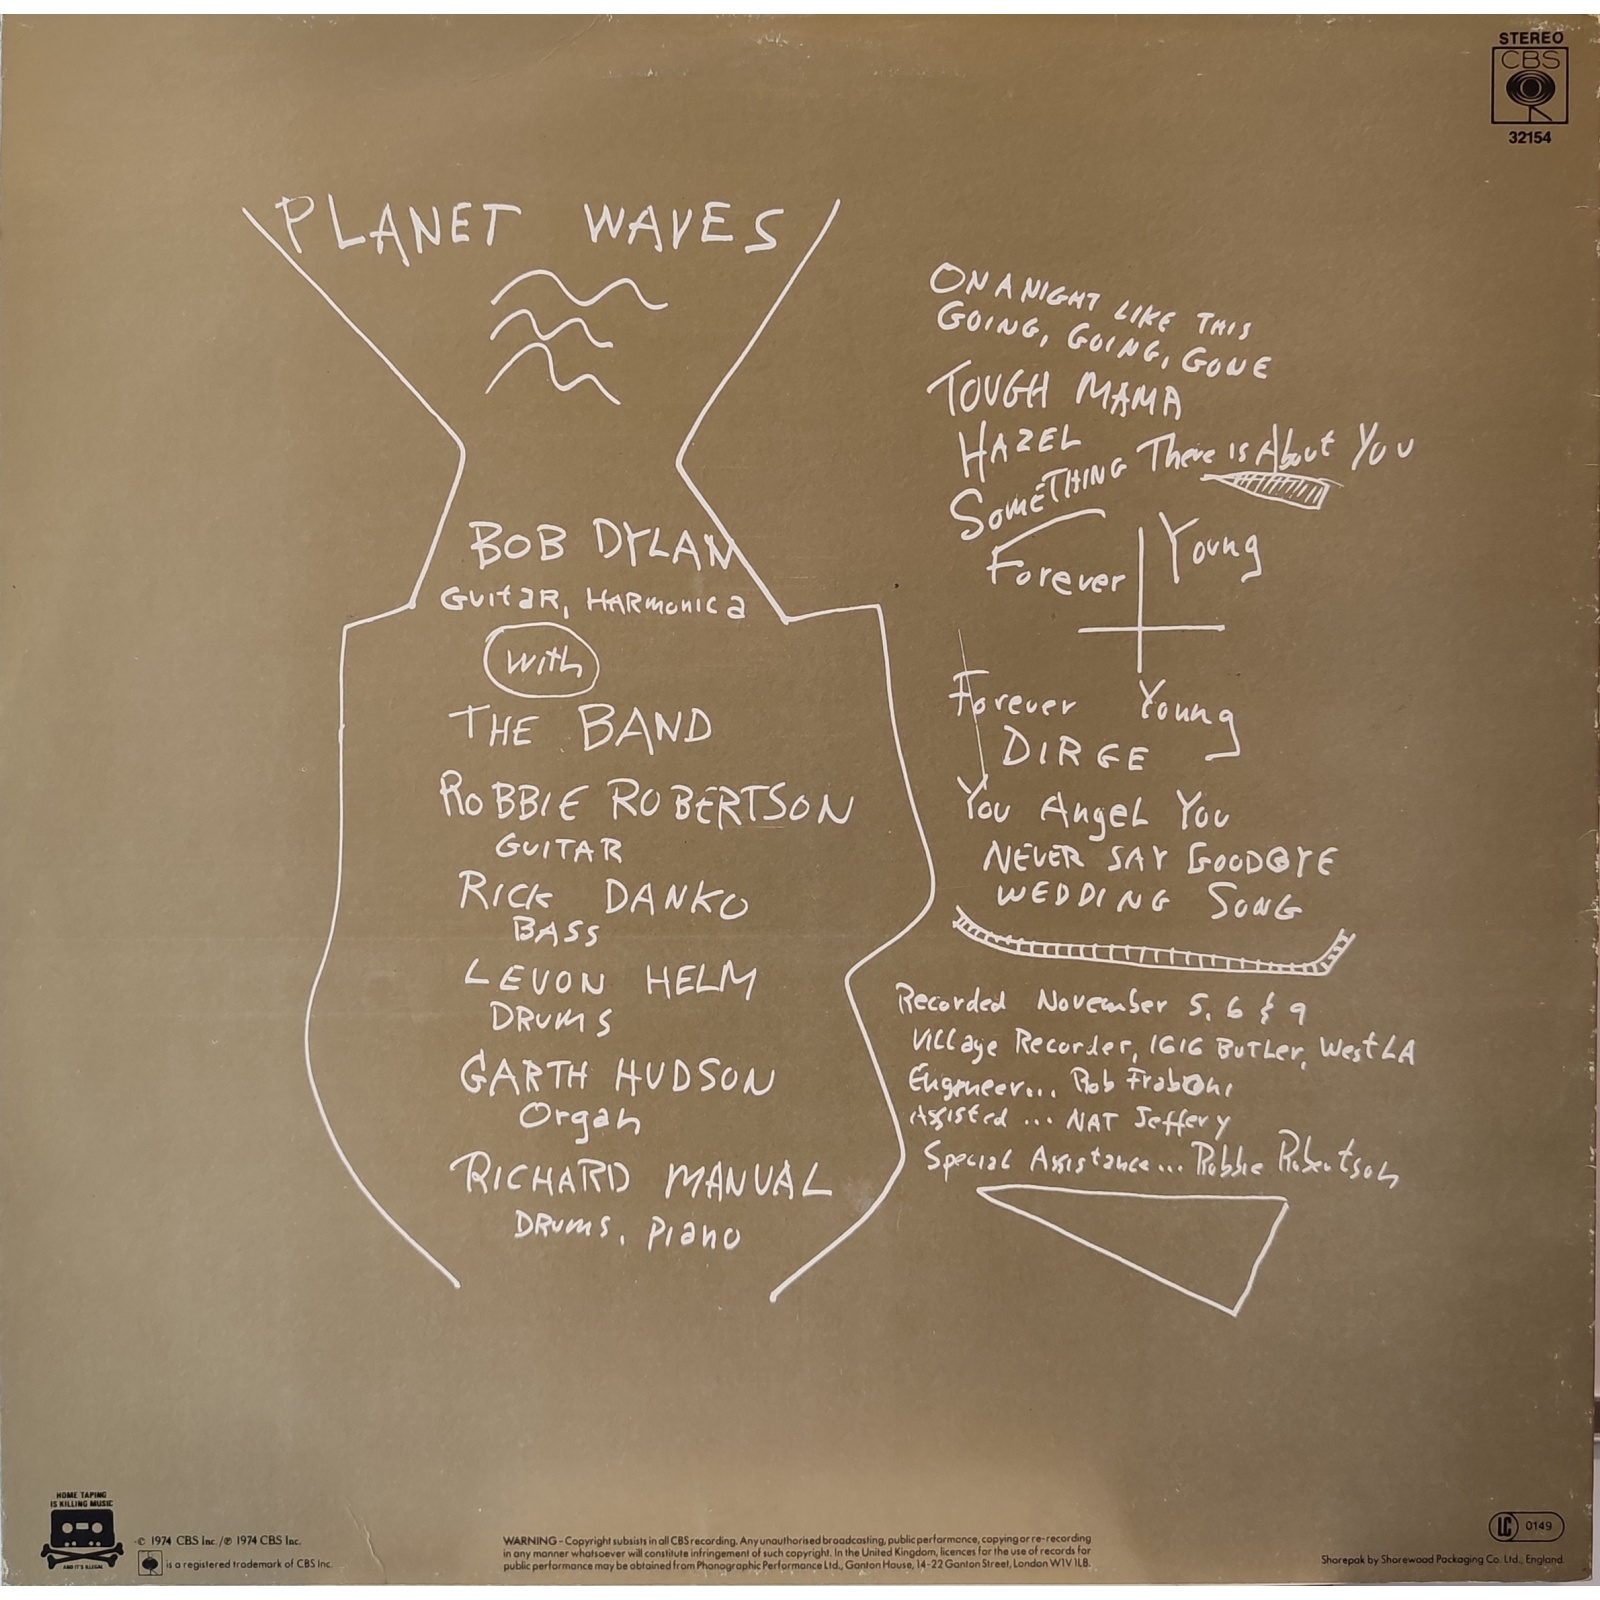 STEREO
CBS
32154
PLANET WAVES
BOB DYLAN
GUITAR, HARMONICA
with
THE BAND
ROBBIE ROBERTSON
GUITAR
RICK DANKO
BASS
LEVON HELM
DRUMS
GARTH HUDSON
Organ
RICHARD MANUAL
DRUMS, PIANO
ON A NIGHT LIKE THIS
GOING, GOING, GONE
TOUGH MAMA
HAZEL
SOMETHING There is About You
Forever Young
Forever Young
DIRGE
You Angel You
NEVER SAY GOODBYE
WEDDING SONG
Recorded November 5, 6 & 9
Village Recorder, 1616 Butler, West LA
Engineer... Rob Fraboni
Assisted... NAT Jeffery
Special Assistance... Robbie Robertson
HOME TAPING
IS KILLING MUSIC
AND IT'S ILLEGAL
© 1974 CBS Inc./℗ 1974 CBS Inc.
is a registered trademark of CBS Inc.
WARNING - Copyright subsists in all CBS recording. Any unauthorised broadcasting, public performance, copying or re-recording
in any manner whatsoever will constitute infringement of such copyright. In the United Kingdom, licences for the use of records for
public performance may be obtained from Phonographic Performance Ltd., Ganton House, 14-22 Ganton Street, London W1V 1LB.
LC 0149
Shorepak by Shorewood Packaging Co. Ltd., England.